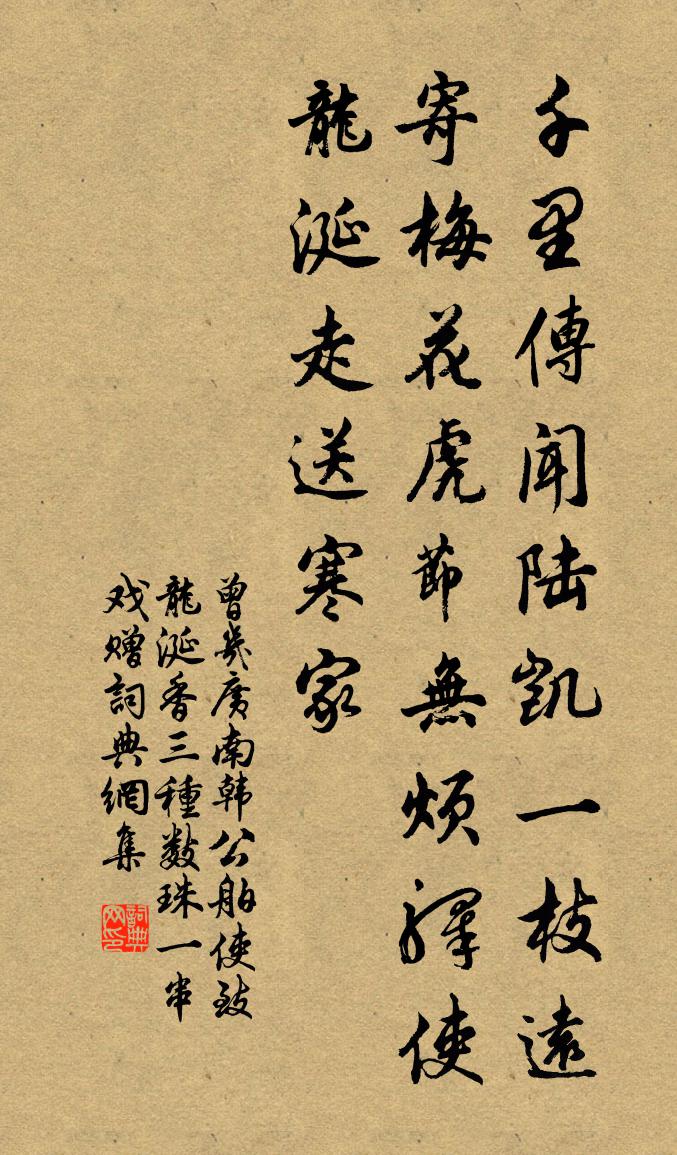 千里傳聞陆凯一枝遠
寄梅花虎節無烦驛使
龍涎走送寒家
曾幾廣南韩公舶使致
龍涎香三種数珠一串
戏赠詞典網集
詞典网印